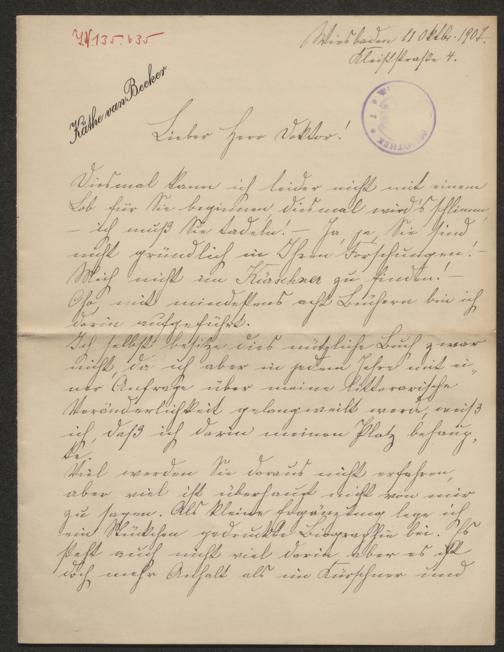 IN 135.635
Wiesbaden 11 Oktbr. 1907.
Kleiststraße 4.
Käthe van Beeker
Lieber Herr Doktor!
Diesmal kann ich leider nicht mit einem
Lob für Sie beginnen, diesmal wird's schlimm,
– ich muß Sie tadeln! – Ja ja, Sie sind
nicht gründlich in Ihren Forschungen! –
Mich nicht im Kürschner zu finden! –
Oho, mit mindestens acht Büchern bin ich
darin aufgeführt.
Ich selbst besitze dies nützliche Buch zwar
nicht, da ich aber in jedem Jahre mit ei-
ner Anfrage über meine litterarische
Veränderlichkeit gelangweilt werde, weiß
ich, daß ich darin meinen Platz behaup-
te.
Viel werden Sie daraus nicht erfahren,
aber viel ist überhaupt nicht von mir
zu sagen. Als kleine Ergänzung lege ich
ein Stückchen gedruckte Biographie bei. Es
steht auch nicht viel darin aber es ist
doch mehr Anhalt als im Kürschner und